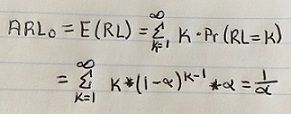 ARL₀ = E(RL) = ∞Σk=1 k · Pr(RL=k)
= ∞Σk=1 k*(1-α)ᵏ⁻¹*α = 1/α